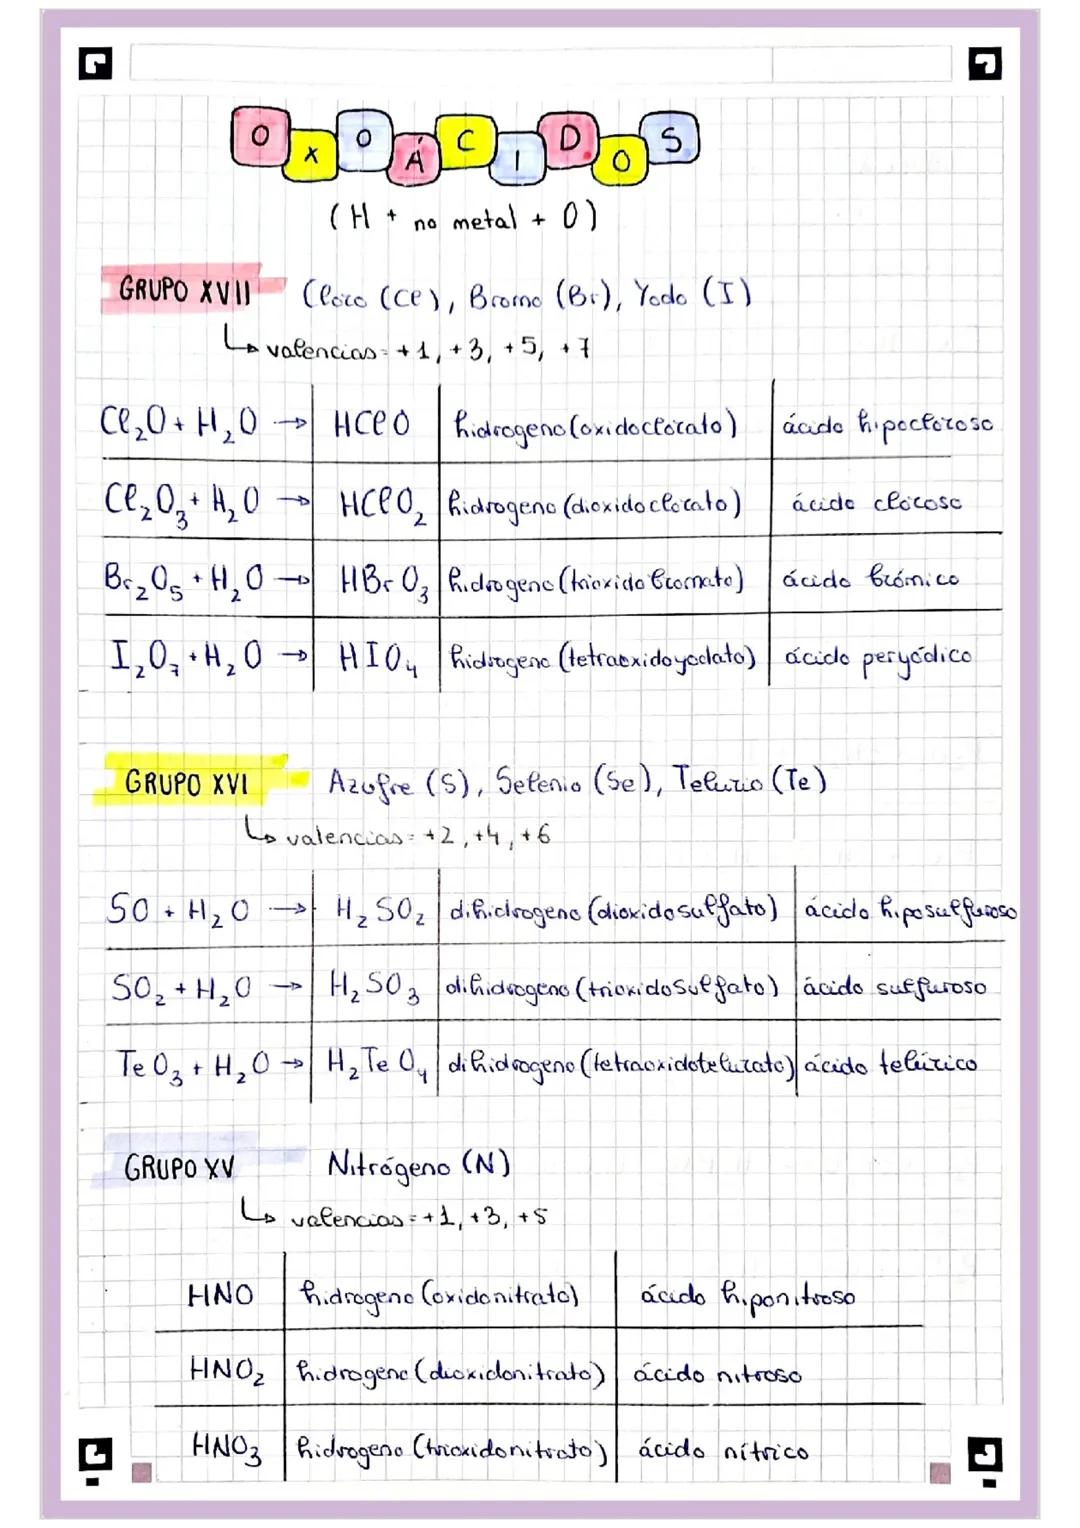 OXOÁCIDOS
(H + no metal + O)
GRUPO XVII Cloro (Cl), Bromo (Br), Yodo (I)
↳ valencias = +1, +3, +5, +7
Cl₂O + H₂O → HClO hidrogeno (oxidoclorato) ácido hipocloroso
Cl₂O₃ + H₂O → HClO₂ hidrogeno (dioxidoclorato) ácido cloroso
Br₂O₅ + H₂O → HBrO₃ hidrogeno (trioxidobromato) ácido brómico
I₂O₇ + H₂O → HIO₄ hidrogeno (tetraoxidoyodato) ácido peryódico
GRUPO XVI Azufre (S), Selenio (Se), Telurio (Te)
↳ valencias = +2, +4, +6
SO + H₂O → H₂SO₂ dihidrogeno (dioxidosulfato) ácido hiposulfuroso
SO₂ + H₂O → H₂SO₃ dihidrogeno (trioxidosulfato) ácido sulfuroso
TeO₃ + H₂O → H₂TeO₄ dihidrogeno (tetraoxidotelurato) ácido telúrico
GRUPO XV Nitrógeno (N)
↳ valencias = +1, +3, +5
HNO hidrogeno (oxidonitrato) ácido hiponitroso
HNO₂ hidrogeno (dioxidonitrato) ácido nitroso
HNO₃ hidrogeno (trioxidonitrato) ácido nítrico